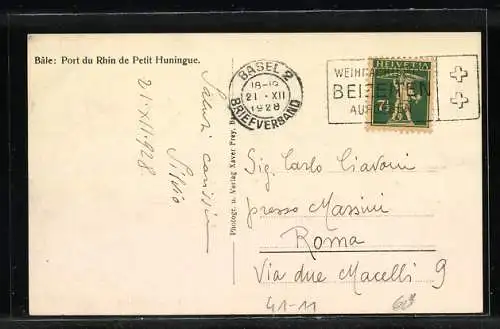 Bâle: Port du Rhin de Petit Huningue.
BASEL 2
18-19
21. XII
1928
BRIEFVERSAND
WEIHNACHTS
BEIZEITEN
AUF
HELVETIA
7½
Saluti carissimi
Silvio
21.XII.928
Photogr. u. Verlag Xaver Frey, B
Sig. Carlo Ciavoni
presso Massini
Roma
Via due Macelli 9
41-11